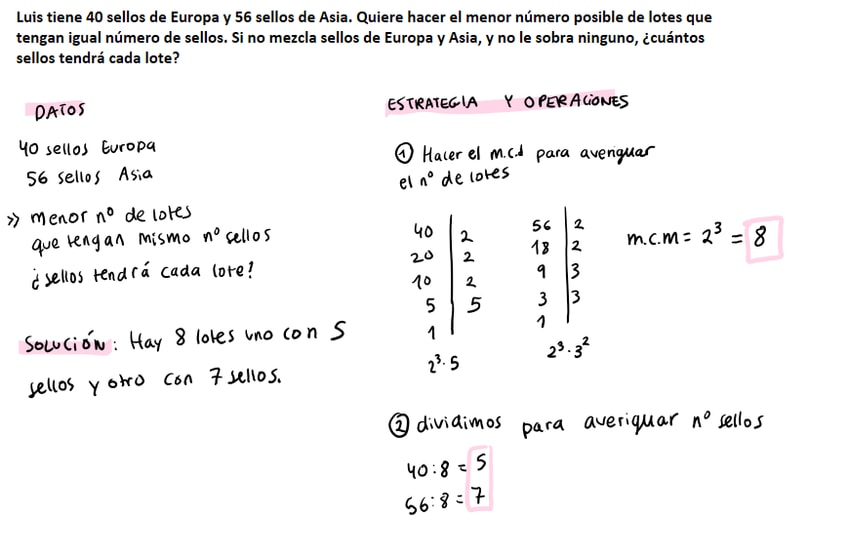 Luis tiene 40 sellos de Europa y 56 sellos de Asia. Quiere hacer el menor número posible de lotes que
tengan igual número de sellos. Si no mezcla sellos de Europa y Asia, y no le sobra ninguno, ¿cuántos
sellos tendrá cada lote?
DATOS
40 sellos Europa
56 sellos Asia
» menor nº de lotes
que tengan mismo nº sellos
¿sellos tendrá cada lote?
SOLUCIÓN: Hay 8 lotes uno con 5
sellos y otro con 7 sellos.
ESTRATEGIA Y OPERACIONES
① Hacer el m.c.d para averiguar
el nº de lotes
40 | 2
20 | 2
10 | 2
5 | 5
1
2³·5
56 | 2
18 | 2
9 | 3
3 | 3
1
2³·3²
m.c.m = 2³ = 8
② dividimos para averiguar nº sellos
40:8 = 5
56:8 = 7